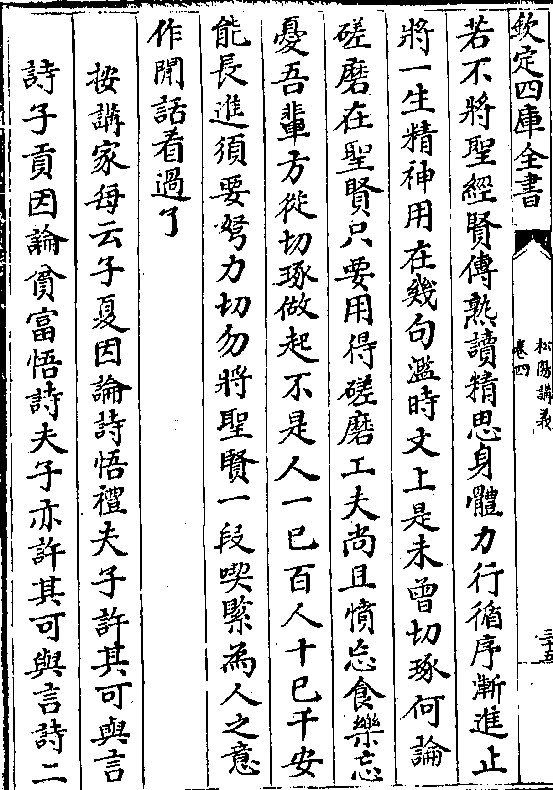 欽定四庫全書
松陽講義
卷四
三十五
若不將聖經賢傳熟讀精思身體力行循序漸進止
將一生精神用在幾句濫時文上是未曾切琢何論
磋磨在聖賢只要用得磋磨工夫尚且憤忘食樂忘
憂吾輩方從切琢做起不是人一已百人十已千安
能長進須要努力切勿將聖賢一段喫緊為人之意
作閒話看過了
按講家每云子夏因論詩悟禮夫子許其可與言
詩子貢因論貧富悟詩夫子亦許其可與言詩二